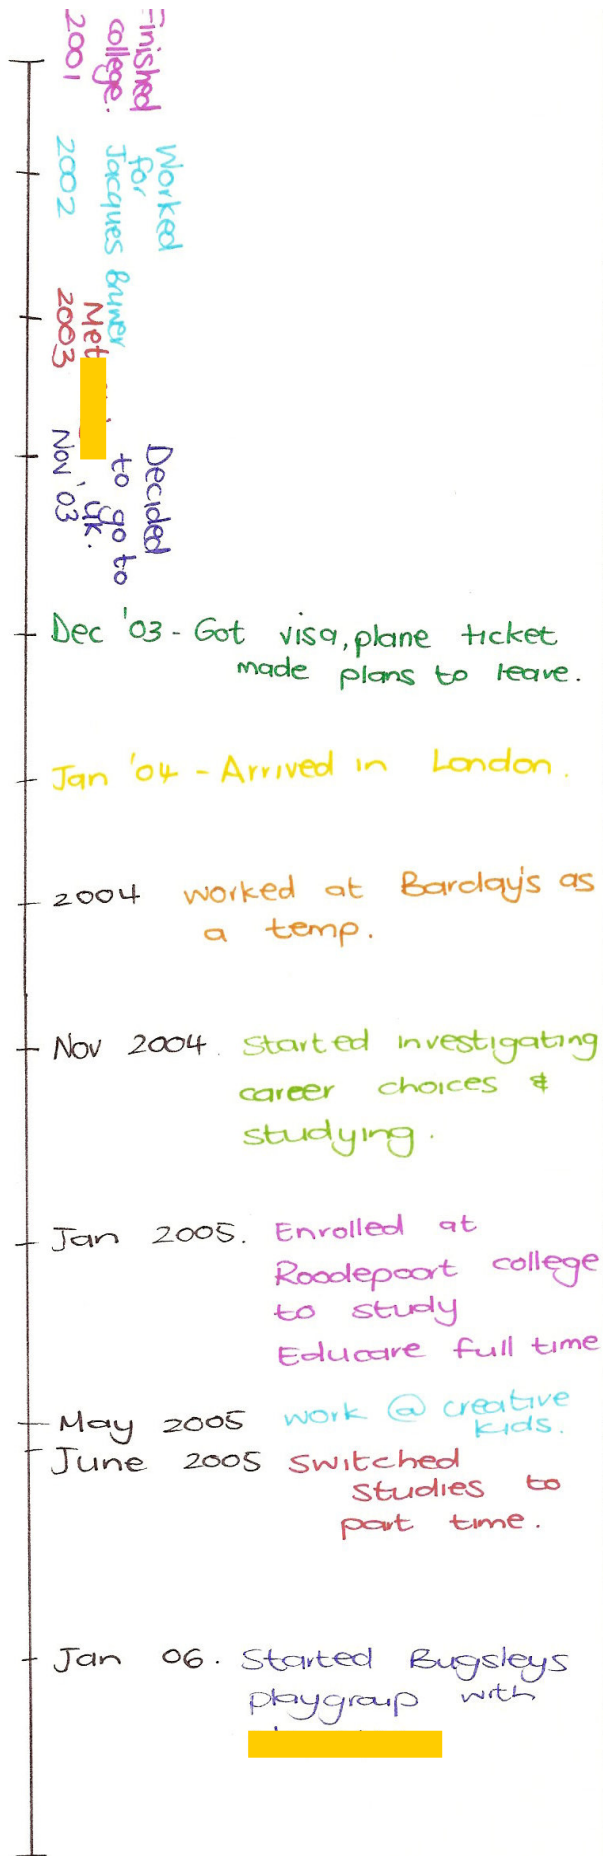 Finished
college.
2001
Worked
for
Jacques Bruwer
2002
Met
2003
Decided
to go to
UK.
Nov '03
Dec '03 - Got visa, plane ticket
made plans to leave.
Jan '04 - Arrived in London.
2004 worked at Barclay's as
a temp.
Nov 2004. Started investigating
career choices &
studying.
Jan 2005. Enrolled at
Roodepoort college
to study
Educare full time
May 2005 work @ creative
kids.
June 2005 switched
studies to
part time.
Jan 06. Started Bugsleys
playgroup with